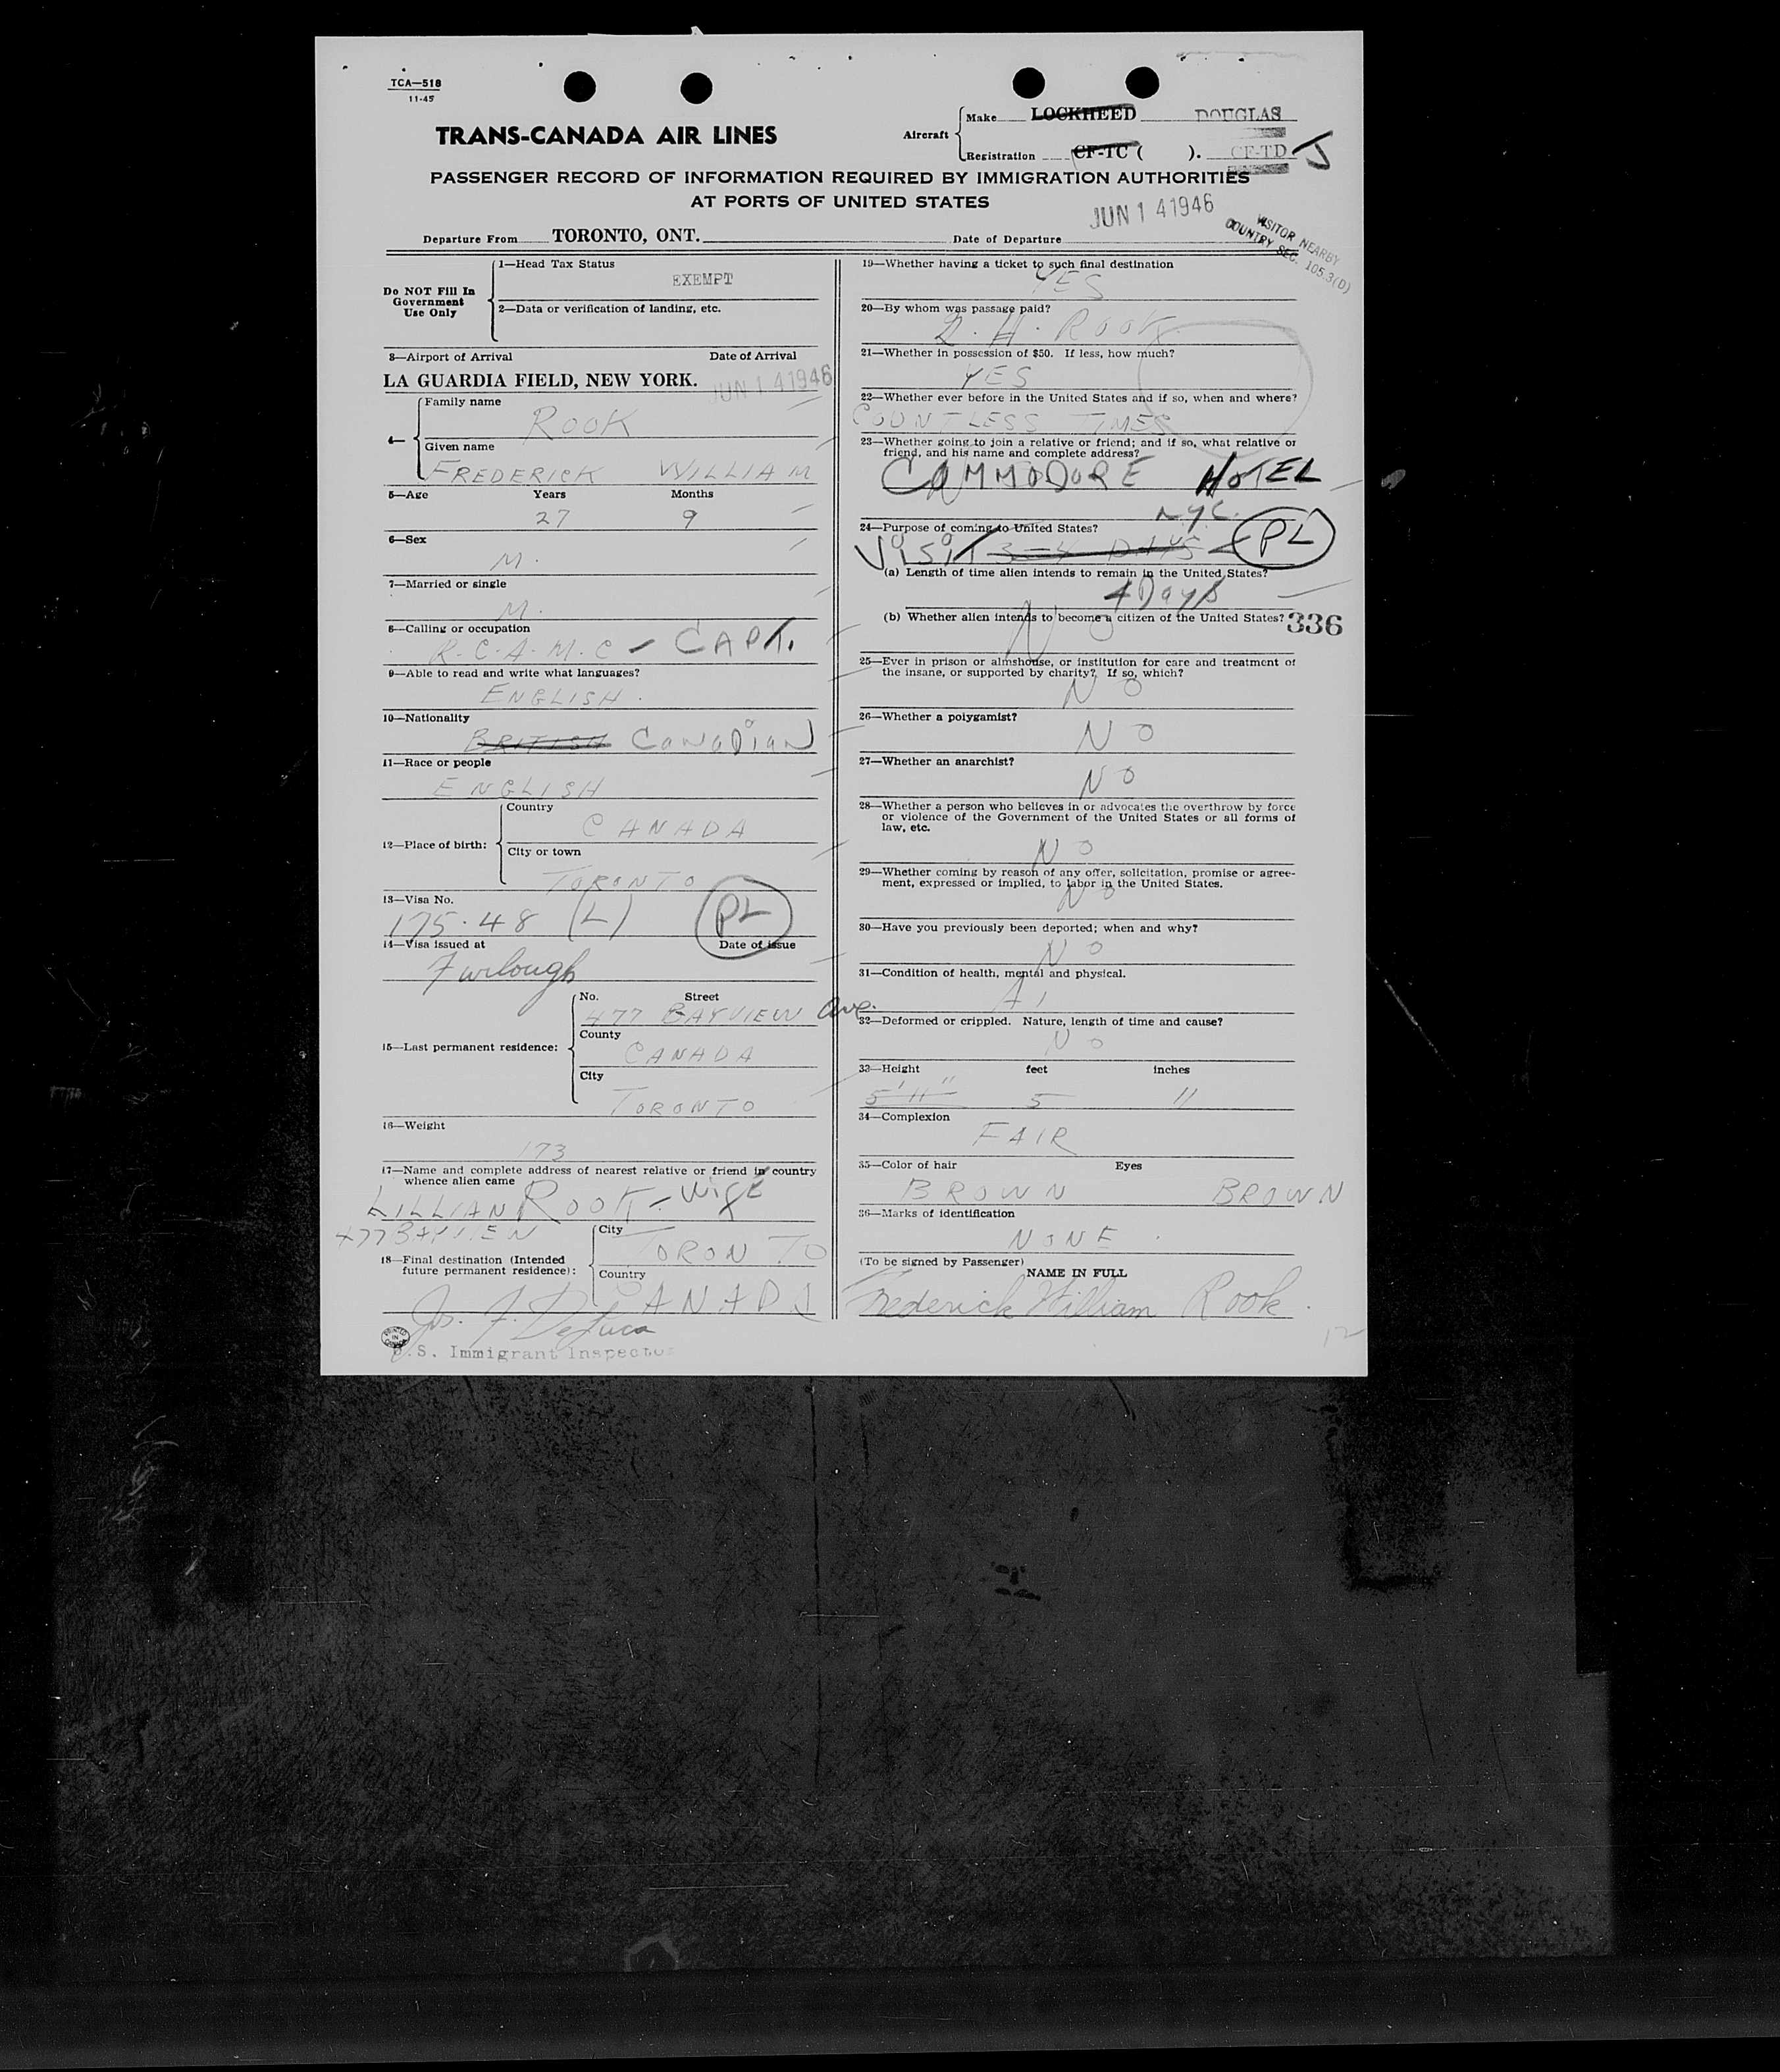 TCA—518
11-45
TRANS-CANADA AIR LINES
Aircraft
Make LOCKHEED DOUGLAS
Registration CF-TC ( ). CF-TD J
PASSENGER RECORD OF INFORMATION REQUIRED BY IMMIGRATION AUTHORITIES
AT PORTS OF UNITED STATES
JUN 14 1946
VISITOR NEARBY
COUNTRY SEC. 105.3(D)
Departure From TORONTO, ONT. Date of Departure
Do NOT Fill In
Government
Use Only
1—Head Tax Status
EXEMPT
2—Data or verification of landing, etc.
3—Airport of Arrival Date of Arrival
LA GUARDIA FIELD, NEW YORK. JUN 14 1946
4—
Family name
ROOK
Given name
FREDERICK WILLIAM
5—Age Years Months
27 9
6—Sex
M.
7—Married or single
M.
8—Calling or occupation
R.C.A.M.C - CAPT.
9—Able to read and write what languages?
ENGLISH.
10—Nationality
BRITISH CANADIAN
11—Race or people
ENGLISH
12—Place of birth:
Country
CANADA
City or town
TORONTO
13—Visa No.
175.48 (L) PL
14—Visa issued at Date of issue
Furlough
15—Last permanent residence:
No. Street
477 BAYVIEW Ave.
County
CANADA
City
TORONTO
16—Weight
173
17—Name and complete address of nearest relative or friend in country
whence alien came
LILLIAN ROOK - WIFE
477 BAYVIEW
18—Final destination (Intended
future permanent residence):
City
TORONTO
Country
CANADA
Jos. F. DeLuca
U.S. Immigrant Inspector
PRINTED IN CANADA
19—Whether having a ticket to such final destination
YES
20—By whom was passage paid?
H. ROOK
21—Whether in possession of $50. If less, how much?
YES
22—Whether ever before in the United States and if so, when and where?
COUNTLESS TIMES
23—Whether going to join a relative or friend; and if so, what relative or
friend, and his name and complete address?
COMMODORE HOTEL
NYC.
24—Purpose of coming to United States?
VISIT 3-4 DAYS PL
(a) Length of time alien intends to remain in the United States?
4 Days
(b) Whether alien intends to become a citizen of the United States? 336
NO
25—Ever in prison or almshouse, or institution for care and treatment of
the insane, or supported by charity? If so, which?
NO
26—Whether a polygamist?
NO
27—Whether an anarchist?
NO
28—Whether a person who believes in or advocates the overthrow by force
or violence of the Government of the United States or all forms of
law, etc.
NO
29—Whether coming by reason of any offer, solicitation, promise or agree-
ment, expressed or implied, to labor in the United States.
NO
30—Have you previously been deported; when and why?
NO
31—Condition of health, mental and physical.
A1
32—Deformed or crippled. Nature, length of time and cause?
NO
33—Height feet inches
5' 11" 5 11
34—Complexion
FAIR
35—Color of hair Eyes
BROWN BROWN
36—Marks of identification
NONE.
(To be signed by Passenger)
NAME IN FULL
Frederick William Rook.
12